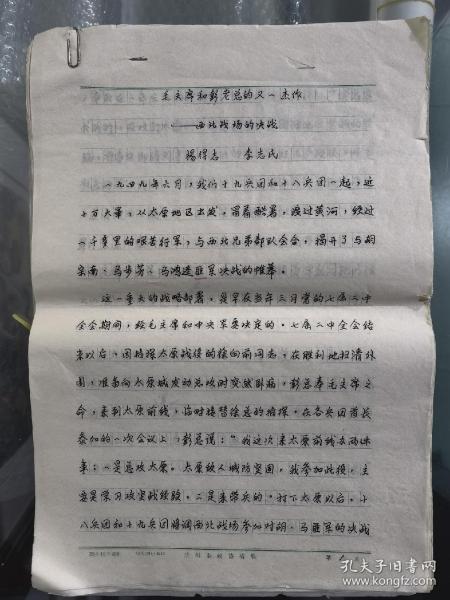 毛主席和彭老总的又一杰作
——西北战场的决战
杨得志 李志民
一九四九年六月，我们十九兵团和十八兵团一起，近
十万大军，从太原地区出发，冒着酷暑，渡过黄河，经过
一千多里的艰苦行军，与西北兄弟部队会合，揭开了与胡
宗南、马步芳、马鸿逵匪军决战的帷幕。
这一重大的战略部署，是早在当年三月党的七届二中
全会期间，经毛主席和中央军委决定的。七届二中全会结
束以后，因指挥太原战役的徐向前同志，在胜利地扫清外
围，准备向太原城发动总攻时突然卧病，彭总奉毛主席之
命，来到太原前线，临时接替徐总的指挥。在各兵团首长
参加的一次会议上，彭总说："我这次来太原前线有两件
事：一是总攻太原。太原敌人城防坚固，我参加此役，主
要是学习攻坚战经验。二是来带兵的。打下太原以后，十
八兵团和十九兵团将调西北战场参加对胡、马匪军的决战
第 页
孔夫子旧书网